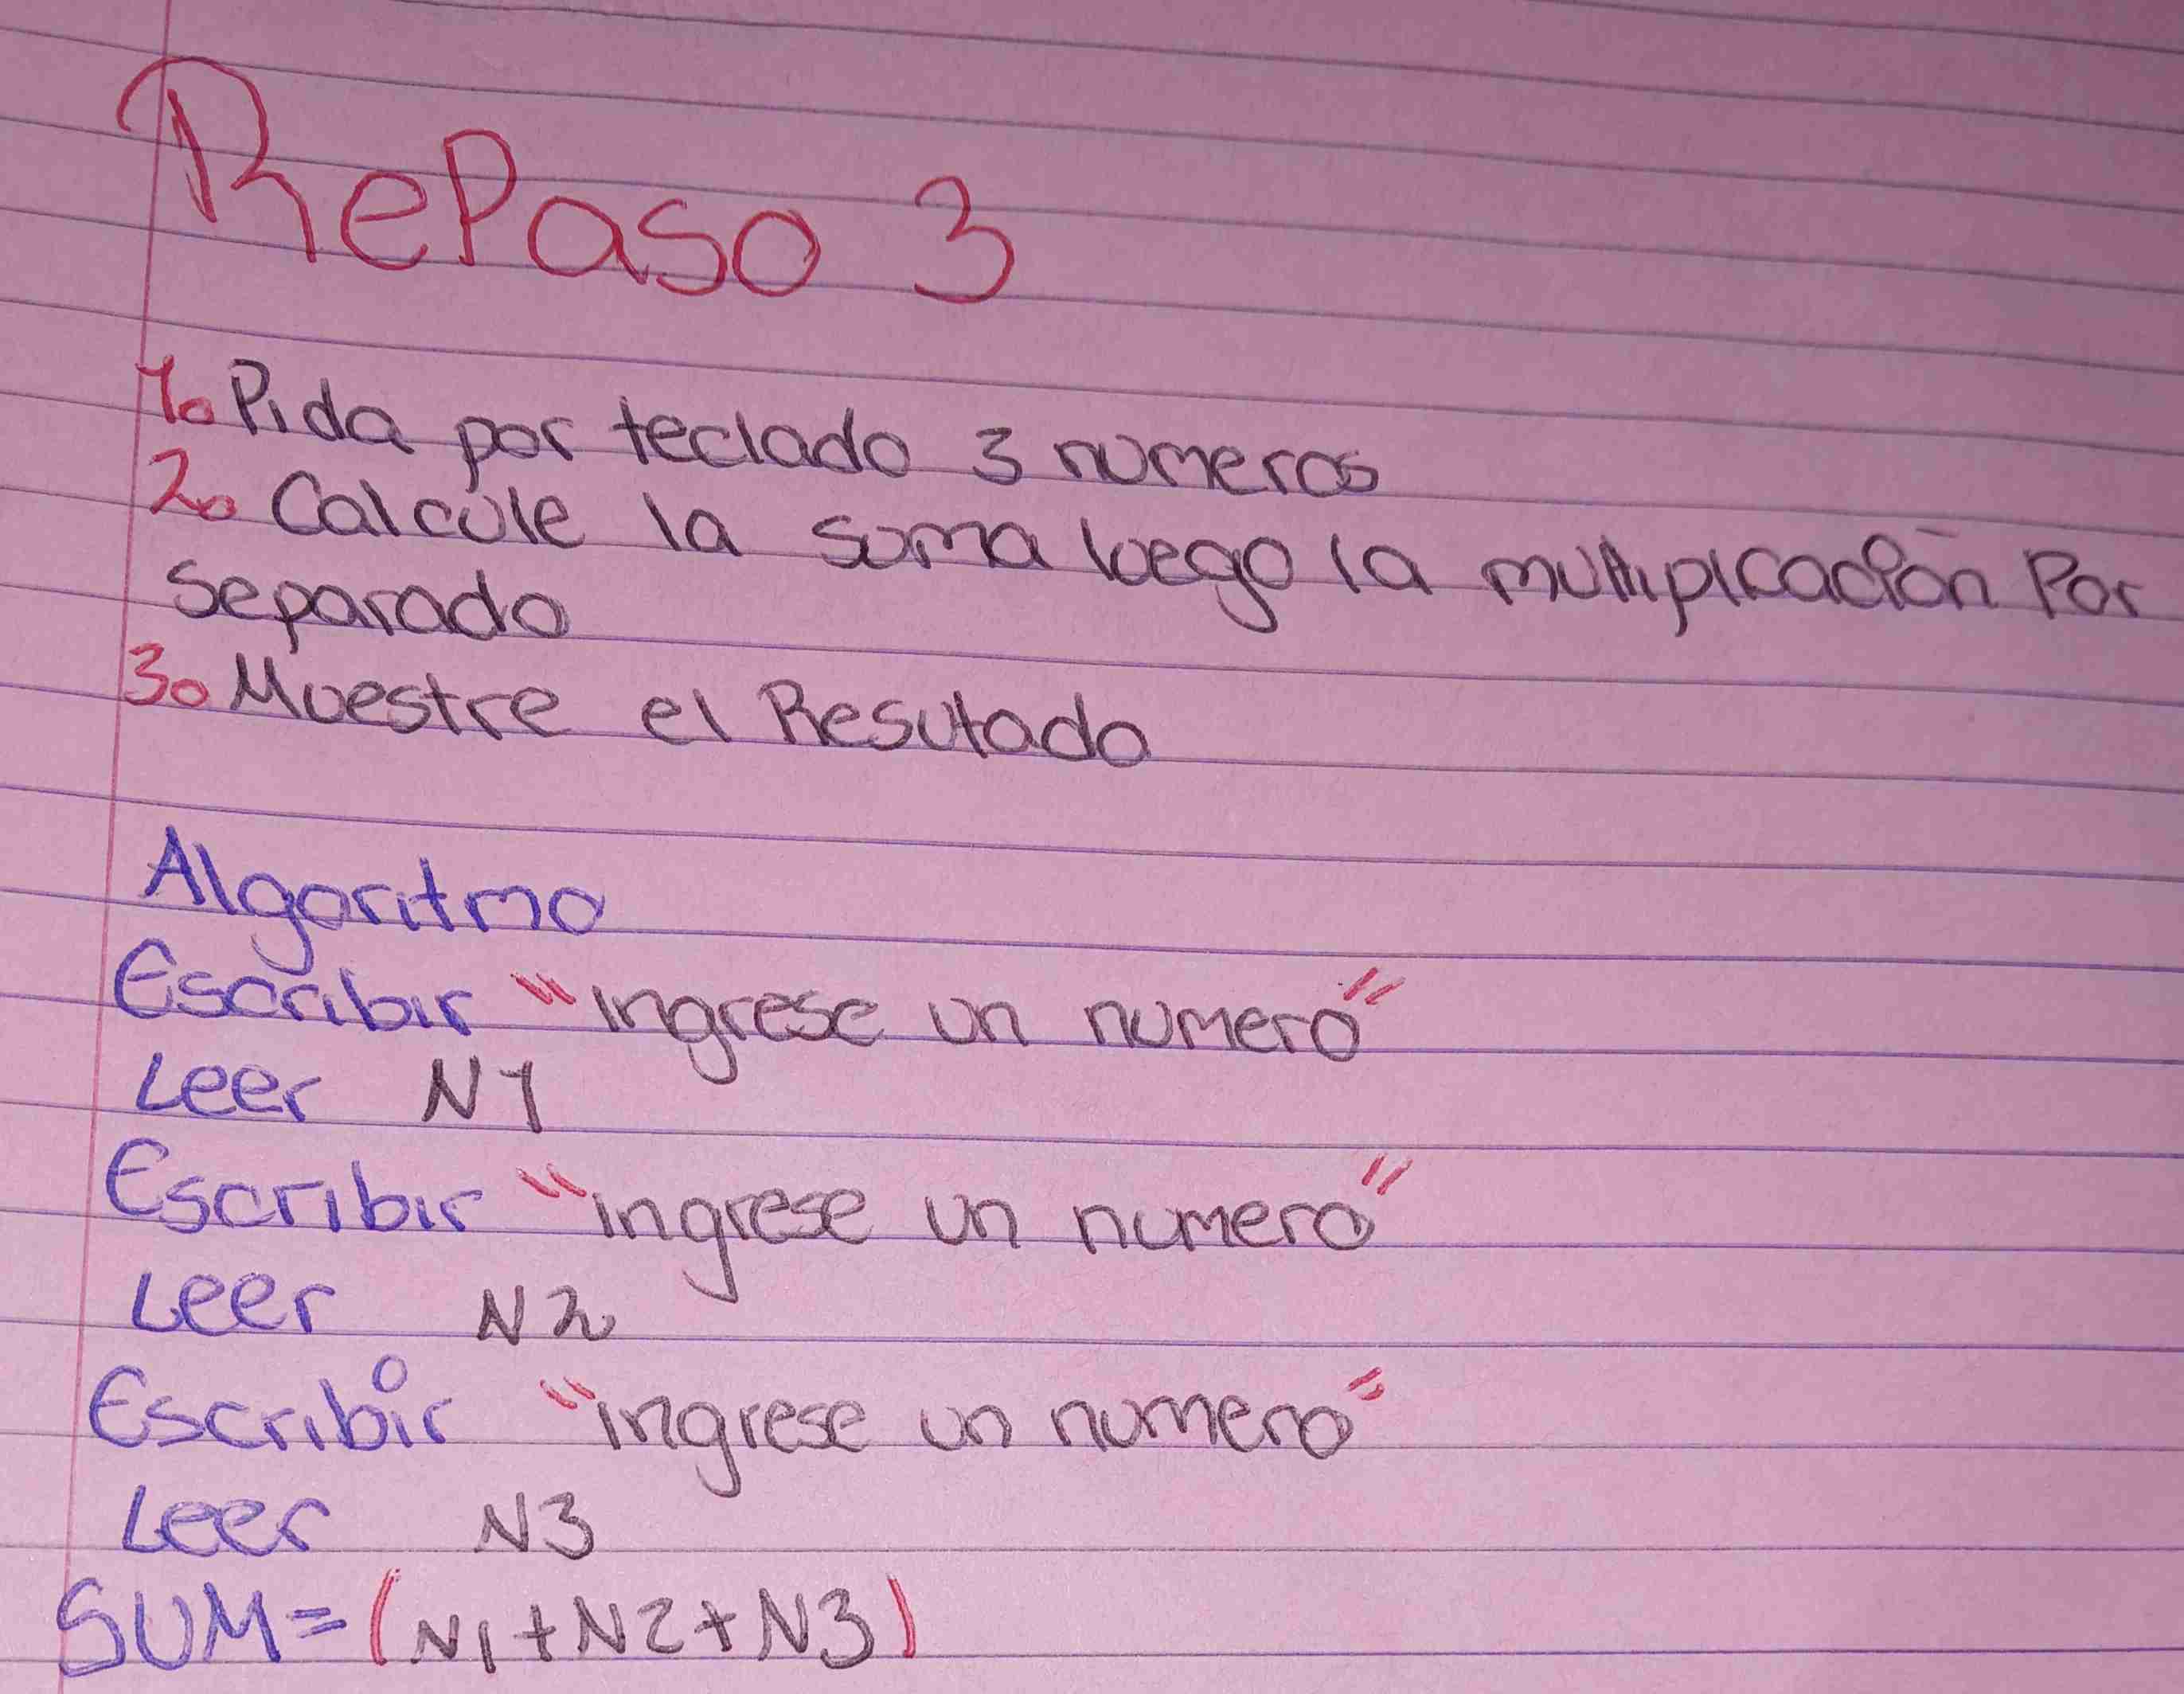 RePaso 3
1. Pida por teclado 3 numeros
2. Calcule la suma luego la multiplicación Por
separado
3. Muestre el Resutado
Algoritmo
Escribir "ingrese un numero"
Leer N1
Escribir "ingrese un numero"
Leer N2
Escribir "ingrese un numero"
Leer N3
SUM=(N1+N2+N3)